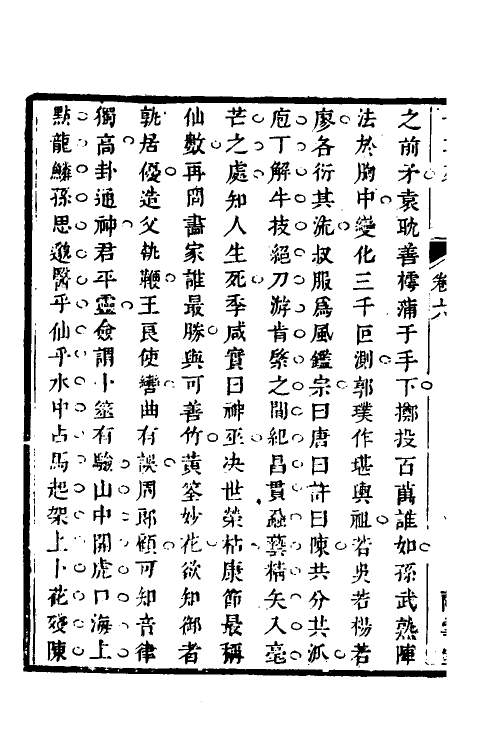 卷六
之前矛袁耽善樗蒲于手下擲投百萬誰如孫武熟陣
法於胸中變化三千叵測郭璞作堪輿祖若吳若楊若
廖各衍其流叔服爲風鑑宗曰唐曰許曰陳共分共派
庖丁解牛技絕刀游肯綮之間紀昌貫蝨藝精矢入毫
芒之處知人生死季咸實曰神巫决世榮枯康節最稱
仙數再問畵家誰最勝與可善竹黃筌妙花欲知御者
孰居優造父執鞭王良使轡曲有誤周郎顧可知音律
獨高卦通神君平靈僉謂卜筮有驗山中開虎口海上
點龍鱗孫思邈醫乎仙乎水中占馬起架上卜花殘陳